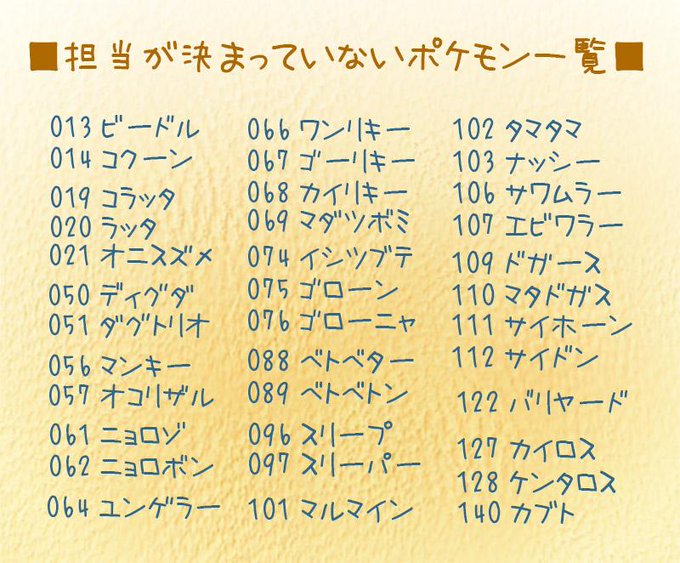 ■担当が決まっていないポケモン一覧■
013 ビードル
014 コクーン
019 コラッタ
020 ラッタ
021 オニスズメ
050 ディグダ
051 ダグトリオ
056 マンキー
057 オコリザル
061 ニョロゾ
062 ニョロボン
064 ユンゲラー
066 ワンリキー
067 ゴーリキー
068 カイリキー
069 マダツボミ
074 イシツブテ
075 ゴローン
076 ゴローニャ
088 ベトベター
089 ベトベトン
096 スリープ
097 スリーパー
101 マルマイン
102 タマタマ
103 ナッシー
106 サワムラー
107 エビワラー
109 ドガース
110 マタドガス
111 サイホーン
112 サイドン
122 バリヤード
127 カイロス
128 ケンタロス
140 カブト